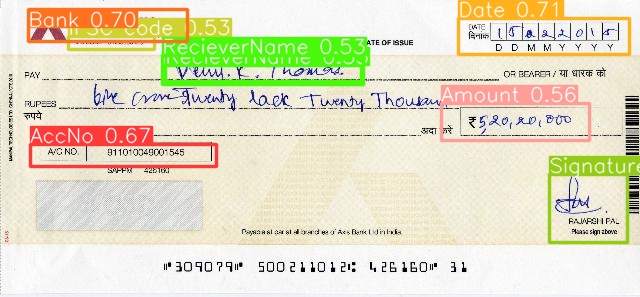 Bank 0.70
IFSC Code 0.53
Date 0.71
RecieverName 0.53
DATE OF ISSUE
DATE
दिनांक
15022015
D D M M Y Y Y Y
PAY
Venu. K. Thomas
OR BEARER / या धारक को
RUPEES
रुपये
five crore Twenty lack Twenty Thousand
Amount 0.56
अदा करें
₹5,20,20,000
AccNo 0.67
A/C NO.
911010049001545
SAPPM 426160
Signature
RAJARSHI PAL
Please sign above
Payable at par at all branches of Axis Bank Ltd in India.
⑈309079⑈ 500211012⑆ 426160⑈ 31